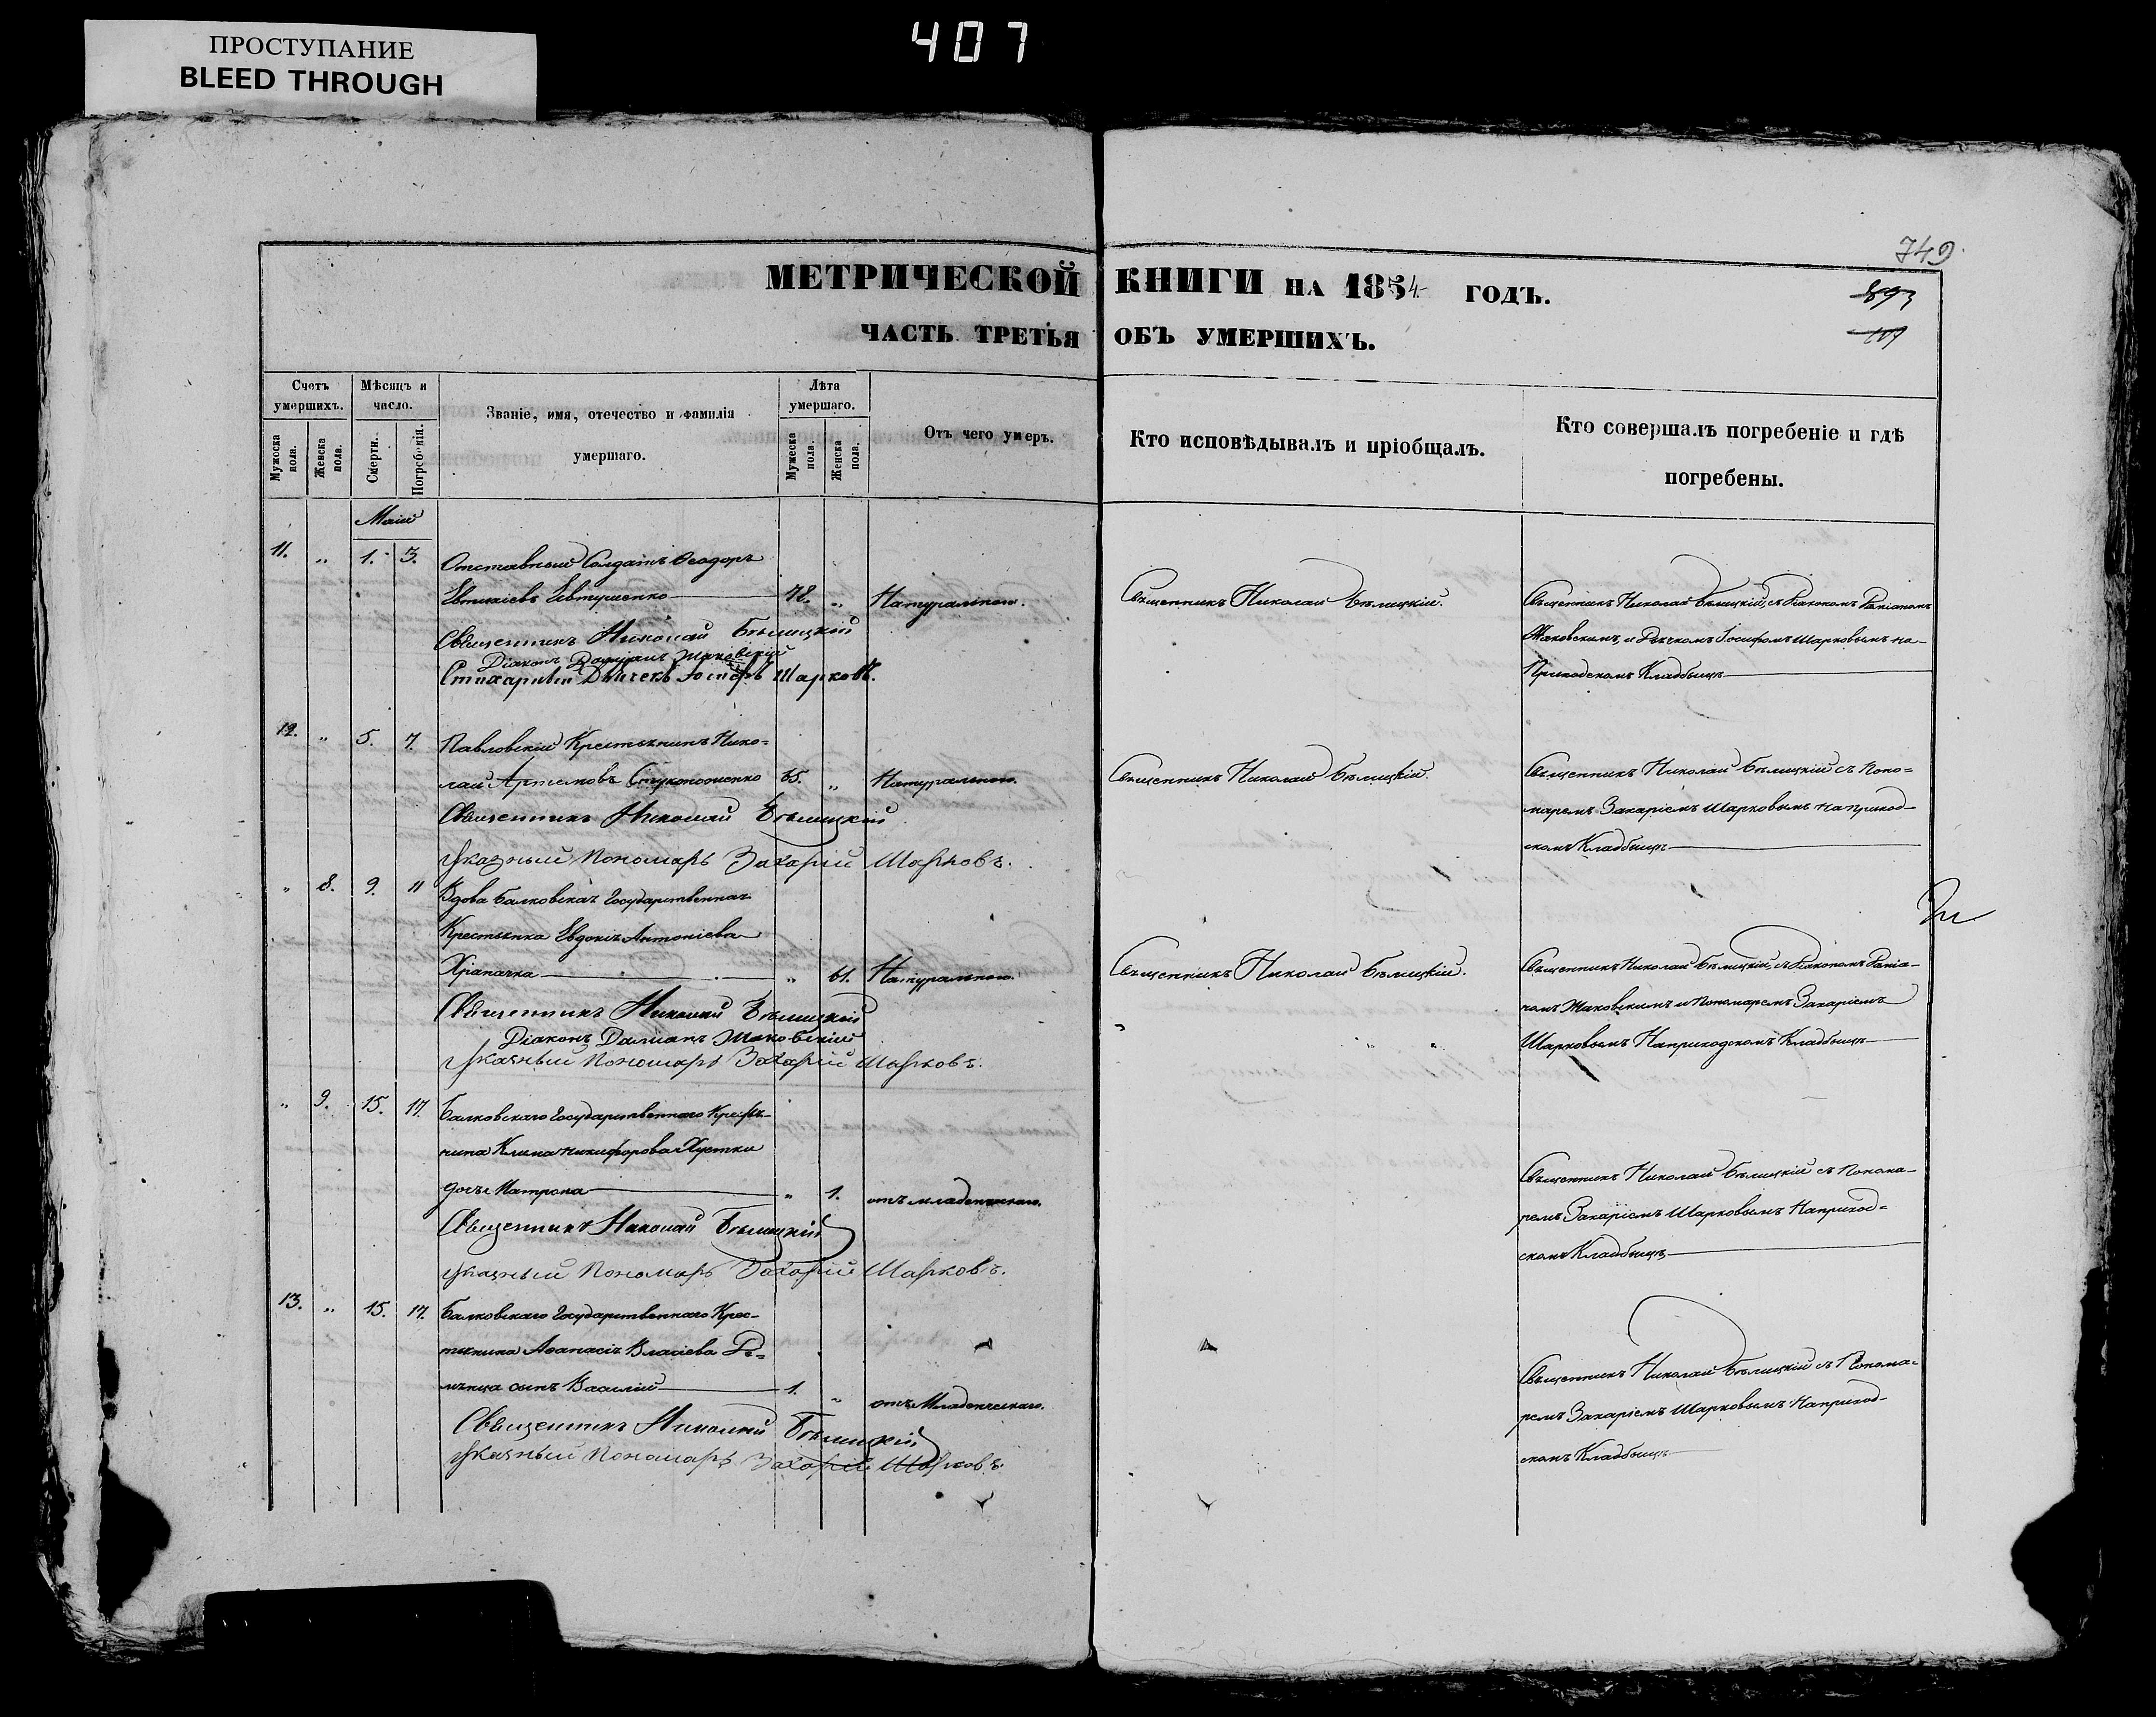 ПРОСТУПАНИЕ
BLEED THROUGH
407
749
893
МЕТРИЧЕСКОЙ КНИГИ НА 1854 ГОДЪ.
ЧАСТЬ ТРЕТЬЯ ОБЪ УМЕРШИХЪ.
Счетъ умершихъ.
Мужеска пола.
Женска пола.
Мѣсяцъ и число.
Смерти.
Погребенія.
Званіе, имя, отечество и фамилія
умершаго.
Лѣта умершаго.
Мужеска пола.
Женска пола.
Отъ чего умеръ.
Кто исповѣдывалъ и пріобщалъ.
Кто совершалъ погребеніе и гдѣ
погребены.
Маій
11. " 1. 3. Отставный Солдатъ Ѳеодоръ
Евтихіевъ Евтушенко 78. " Натуральною. Священникъ Николай Бѣлицкій. Священникъ Николай Бѣлицкій, съ Діакономъ Даміаномъ
Маковскимъ, и Дьячкомъ Іосифомъ Шарковымъ на
Приходскомъ Кладбищѣ
Священникъ Николай Бѣлицкій
Діаконъ Даміанъ Маковскій
Стихарный Дьячекъ Іосифъ Шарковъ.
12. " 5. 7. Павловскій Крестьянинъ Нико=
лай Артемовъ 65. " Натуральною. Священникъ Николай Бѣлицкій. Священникъ Николай Бѣлицкій съ Поно=
маремъ Захаріемъ Шарковымъ на приход-
скомъ Кладбищѣ
Священникъ Николай Бѣлицкій
Указный Пономарь Захарій Шарковъ.
" 8. 9. 11 Вдова Балковская Государственная
Крестьянка Евдокія Антоніева
Храпачка " 61. Натуральною. Священникъ Николай Бѣлицкій. Священникъ Николай Бѣлицкій, съ Діакономъ Даміа-
номъ Маковскимъ и Пономаремъ Захаріемъ
Шарковымъ На приходскомъ Кладбищѣ
Священникъ Николай Бѣлицкій
Діаконъ Даміанъ Маковскій
Указный Пономарь Захарій Шарковъ.
" 9. 15. 17. Балковскаго Государственнаго Крестья-
нина Клима Никифорова Хустки
дочь Матрона " 1. отъ младенческаго.
Священникъ Николай Бѣлицкій съ Понома-
ремъ Захаріемъ Шарковымъ На приход=
скомъ Кладбищѣ
Священникъ Николай Бѣлицкій
Указный Пономарь Захарій Шарковъ.
13. " 15. 17. Балковскаго Государственнаго Крес-
тьянина Аѳанасія Власіева
сынъ Василій 1. " отъ Младенческаго.
Священникъ Николай Бѣлицкій съ Понома-
ремъ Захаріемъ Шарковымъ На приход-
скомъ Кладбищѣ
Священникъ Николай Бѣлицкій
Указный Пономарь Захарій Шарковъ.